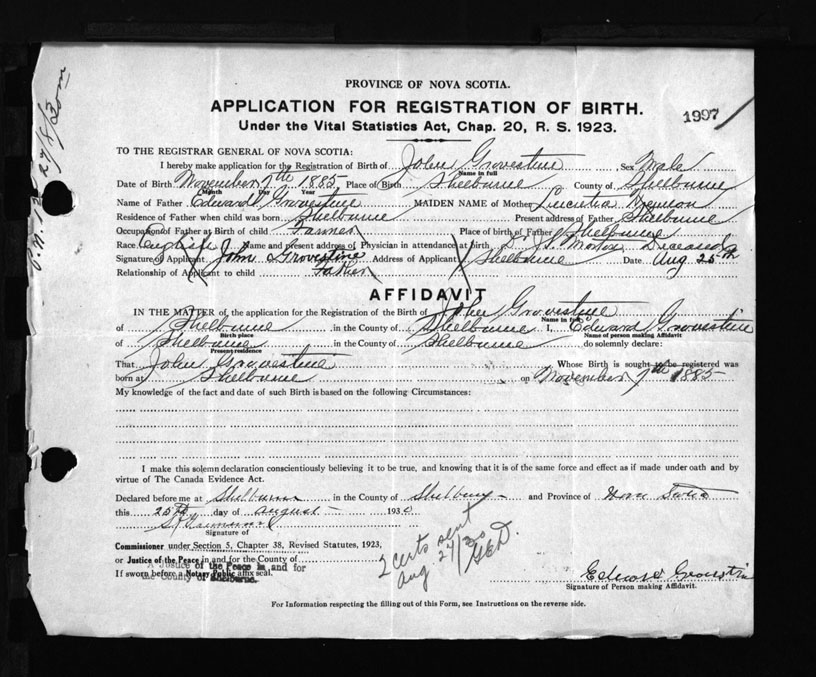 PROVINCE OF NOVA SCOTIA.
APPLICATION FOR REGISTRATION OF BIRTH.
1997
Under the Vital Statistics Act, Chap. 20, R. S. 1923.
TO THE REGISTRAR GENERAL OF NOVA SCOTIA:
I hereby make application for the Registration of Birth of John Grovestine Sex Male
Name in full
Date of Birth November 7th 1885 Place of Birth Shelburne County of Shelburne
Month Day Year
Name of Father Edward Grovestine MAIDEN NAME of Mother Lucretia
Residence of Father when child was born Shelburne Present address of Father Shelburne
Occupation of Father at Birth of child Farmer Place of birth of Father Shelburne
Race English Name and present address of Physician in attendance at birth Dr. Morton Deceased
Signature of Applicant John Grovestine Address of Applicant Shelburne Date Aug 25th
Relationship of Applicant to child Father
AFFIDAVIT
IN THE MATTER of the application for the Registration of the Birth of John Grovestine
Name in full
of Shelburne in the County of Shelburne I, Edward Grovestine
Birth place Name of person making Affidavit
of Shelburne in the County of Shelburne do solemnly declare:
Present residence
That John Grovestine Whose Birth is sought to be registered was
born at Shelburne on November 7th 1885
My knowledge of the fact and date of such Birth is based on the following Circumstances:
I make this solemn declaration conscientiously believing it to be true, and knowing that it is of the same force and effect as if made under oath and by
virtue of The Canada Evidence Act.
Declared before me at Shelburne in the County of Shelburne and Province of Nova Scotia
this 25th day of August 1930
Signature of
Commissioner under Section 5, Chapter 38, Revised Statutes, 1923,
or Justice of the Peace in and for the County of
A Justice of the Peace in and for
If sworn before a Notary Public affix seal.
the County of Shelburne.
2 certs sent
Aug 27/30
GED.
Edward
Signature of Person making Affidavit.
For Information respecting the filling out of this Form, see Instructions on the reverse side.